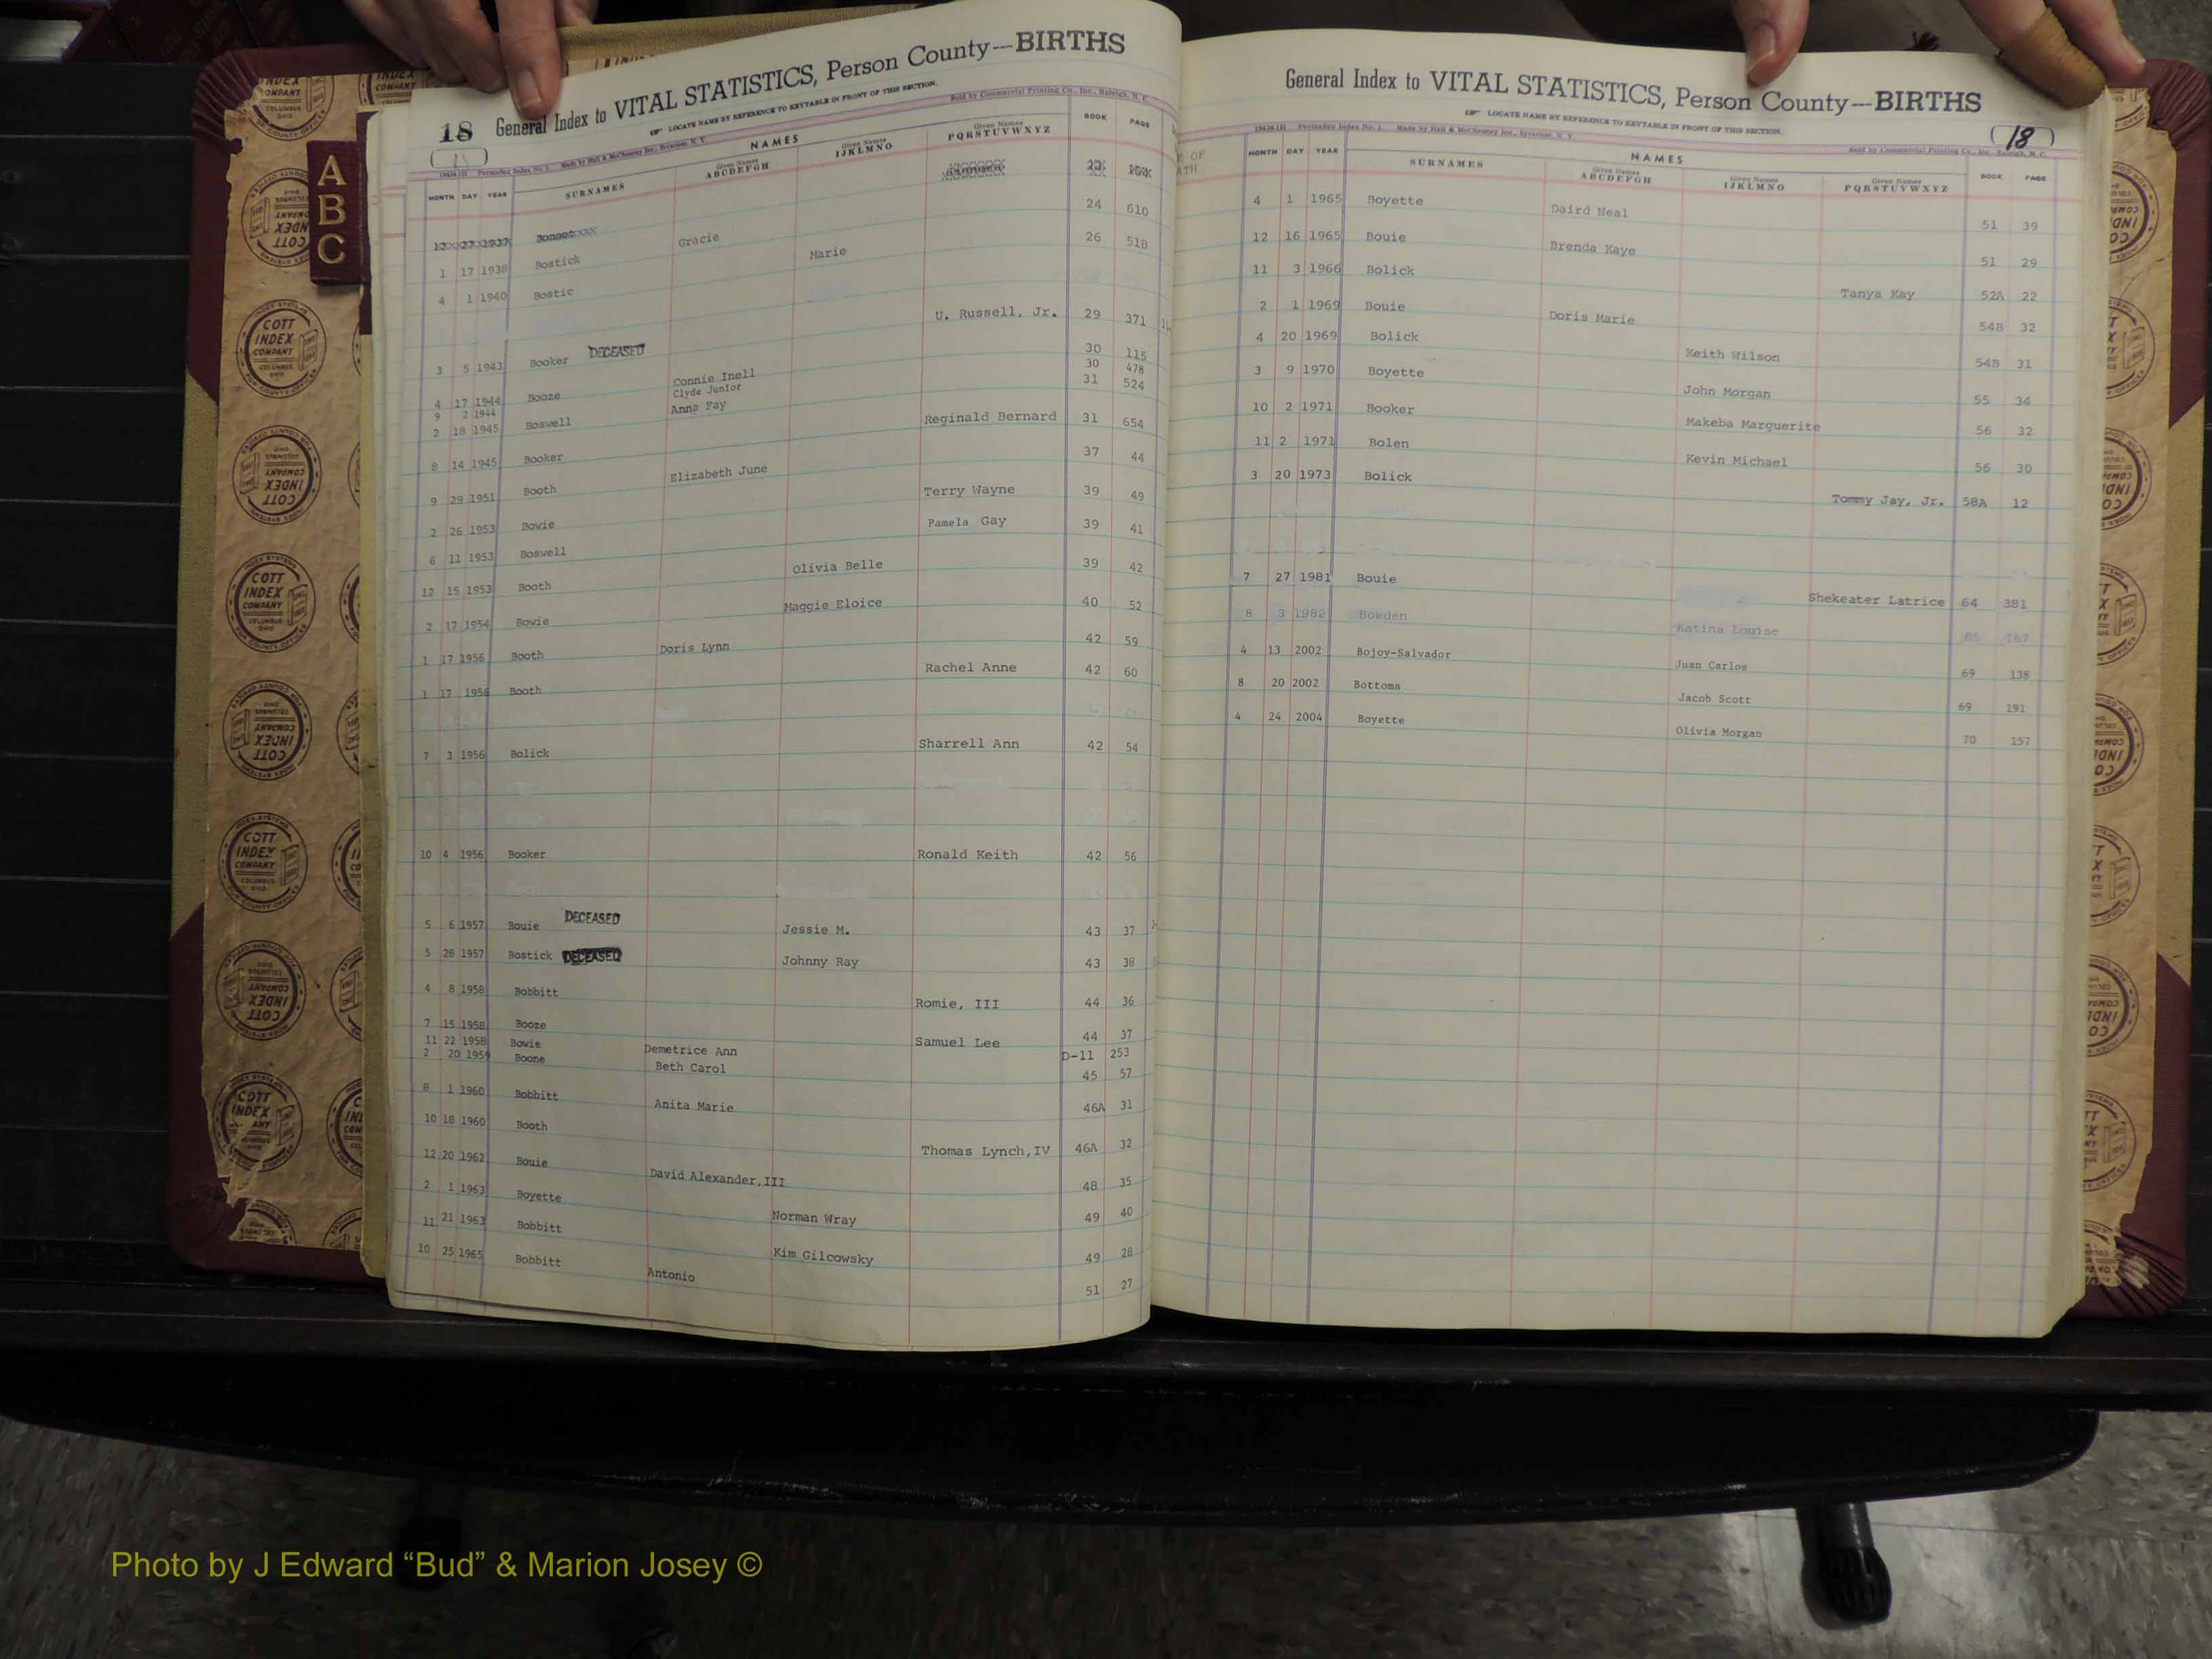 18 General Index to VITAL STATISTICS, Person County---BIRTHS
LOCATE NAME BY REFERENCE TO KEYTABLE IN FRONT OF THIS SECTION.
Sold by Commercial Printing Co., Inc., Raleigh, N. C.
MONTH DAY YEAR SURNAMES NAMES Given Names ABCDEFGH Given Names IJKLMNO Given Names PQRSTUVWXYZ BOOK PAGE
12 27 1937 Bonnet
1 17 1938 Bostick Gracie 24 610
4 1 1940 Bostic Marie 26 518
3 5 1943 Booker DECEASED U. Russell, Jr. 29 371
4 17 1944 Booze Connie Inell 30 115
9 2 1944 Clyde Junior 30 478
2 18 1945 Boswell Anna Fay 31 524
8 14 1945 Booker Reginald Bernard 31 654
9 29 1951 Booth Elizabeth June 37 44
2 26 1953 Bowie Terry Wayne 39 49
6 11 1953 Boswell Pamela Gay 39 41
12 15 1953 Booth Olivia Belle 39 42
2 17 1954 Bowie Maggie Eloice 40 52
1 17 1956 Booth Doris Lynn 42 59
1 17 1956 Booth Rachel Anne 42 60
7 3 1956 Bolick Sharrell Ann 42 54
10 4 1956 Booker Ronald Keith 42 56
5 6 1957 Bouie DECEASED Jessie M. 43 37
5 28 1957 Bostick DECEASED Johnny Ray 43 38
4 8 1958 Bobbitt Romie, III 44 36
7 15 1958 Booze Samuel Lee 44 37
11 22 1958 Bowie Demetrice Ann D-11 253
2 20 1959 Boone Beth Carol 45 57
8 1 1960 Bobbitt Anita Marie 46A 31
10 18 1960 Booth Thomas Lynch,IV 46A 32
12 20 1962 Bouie David Alexander,III 48 35
2 1 1963 Boyette Norman Wray 49 40
11 21 1963 Bobbitt Kim Gilcowsky 49 28
10 25 1965 Bobbitt Antonio 51 27
General Index to VITAL STATISTICS, Person County---BIRTHS
LOCATE NAME BY REFERENCE TO KEYTABLE IN FRONT OF THIS SECTION.
(18)
Sold by Commercial Printing Co., Inc., Raleigh, N. C.
MONTH DAY YEAR SURNAMES NAMES Given Names ABCDEFGH Given Names IJKLMNO Given Names PQRSTUVWXYZ BOOK PAGE
4 1 1965 Boyette Daird Neal 51 39
12 16 1965 Bouie Brenda Kaye 51 29
11 3 1966 Bolick Tanya Kay 52A 22
2 1 1969 Bouie Doris Marie 54B 32
4 20 1969 Bolick Keith Wilson 54B 31
3 9 1970 Boyette John Morgan 55 34
10 2 1971 Booker Makeba Marguerite 56 32
11 2 1971 Bolen Kevin Michael 56 30
3 20 1973 Bolick Tommy Jay, Jr. 58A 12
7 27 1981 Bouie Shekeater Latrice 64 381
8 3 1982 Bowden Katina Louise 167
4 13 2002 Bojoy-Salvador Juan Carlos 69 138
8 20 2002 Bottoms Jacob Scott 69 191
4 24 2004 Boyette Olivia Morgan 70 157
A
B
C
COTT INDEX COMPANY COLUMBUS OHIO
Photo by J Edward “Bud” & Marion Josey ©